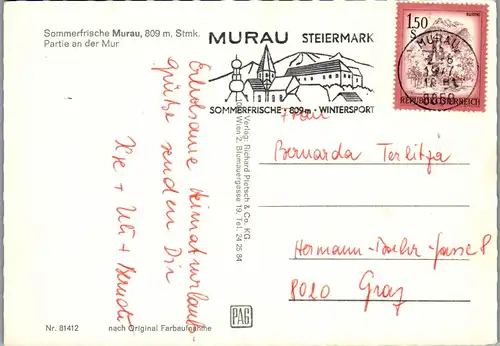 Sommerfrische Murau, 809 m, Stmk.
Partie an der Mur
MURAU STEIERMARK
SOMMERFRISCHE · 809m · WINTERSPORT
1.50
S
MURAU
8850
REPUBLIK ÖSTERREICH
Erholsame Heimaturlaub-
grüße senden Dir
+ Uli +
Verlag: Richard Pietsch & Co. KG.
Wien 2, Blumauergasse 19, Tel. 24 25 84
Frau
Bernarda Terlitza
Hermann-Bahr-Gasse 8
8020 Graz
PAG
Nr. 81412
nach Original Farbaufnahme